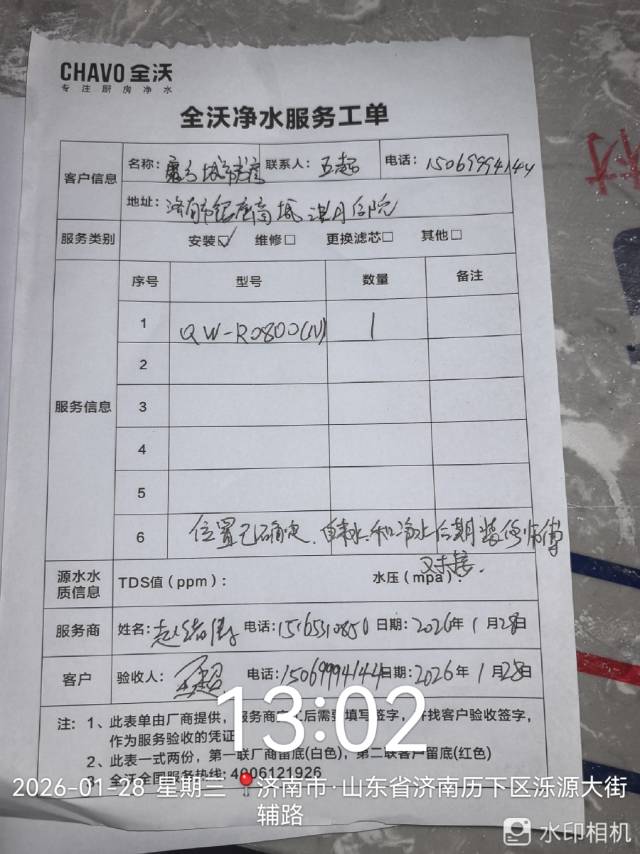 CHAVO 全沃
专注厨房净水
全沃净水服务工单
客户信息 名称: 联系人: 王超 电话: 15069994144
地址: 济南市银座商城
服务类别 安装☑ 维修□ 更换滤芯□ 其他□
服务信息 序号 型号 数量 备注
1 QW-RO800(N) 1
2
3
4
5
6 位置已确定、自来水和净水后期装修师傅
对接.
源水水质信息 TDS值(ppm): 水压(mpa):
服务商 姓名: 电话: 日期: 2026年1月28日
客户 验收人: 王超 电话: 15069994144 日期: 2026年1月28日
注: 1、此表单由厂商提供,服务商 后需填写签字,并找客户验收签字,
作为服务验收的凭证
2、此表一式两份,第一联厂商留底(白色),第二联客户留底(红色)
3、全沃全国服务热线: 4006121926
13:02
2026-01-28 星期三 济南市·山东省济南历下区泺源大街
辅路
水印相机